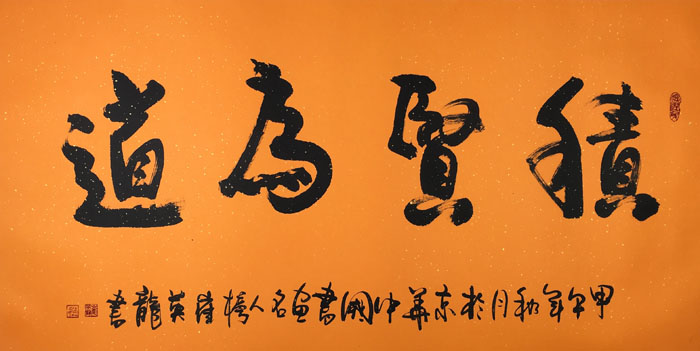 積賢為道
甲午年秋月於京華中國書畫名人英龍書